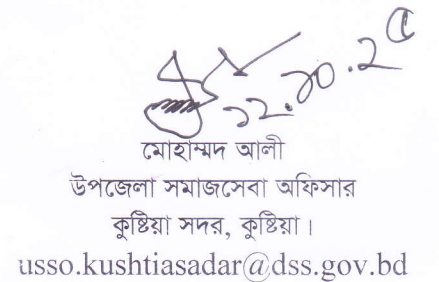 মোহাম্মদ আলী
উপজেলা সমাজসেবা অফিসার
কুষ্টিয়া সদর, কুষ্টিয়া।
usso.kushtiasadar@dss.gov.bd